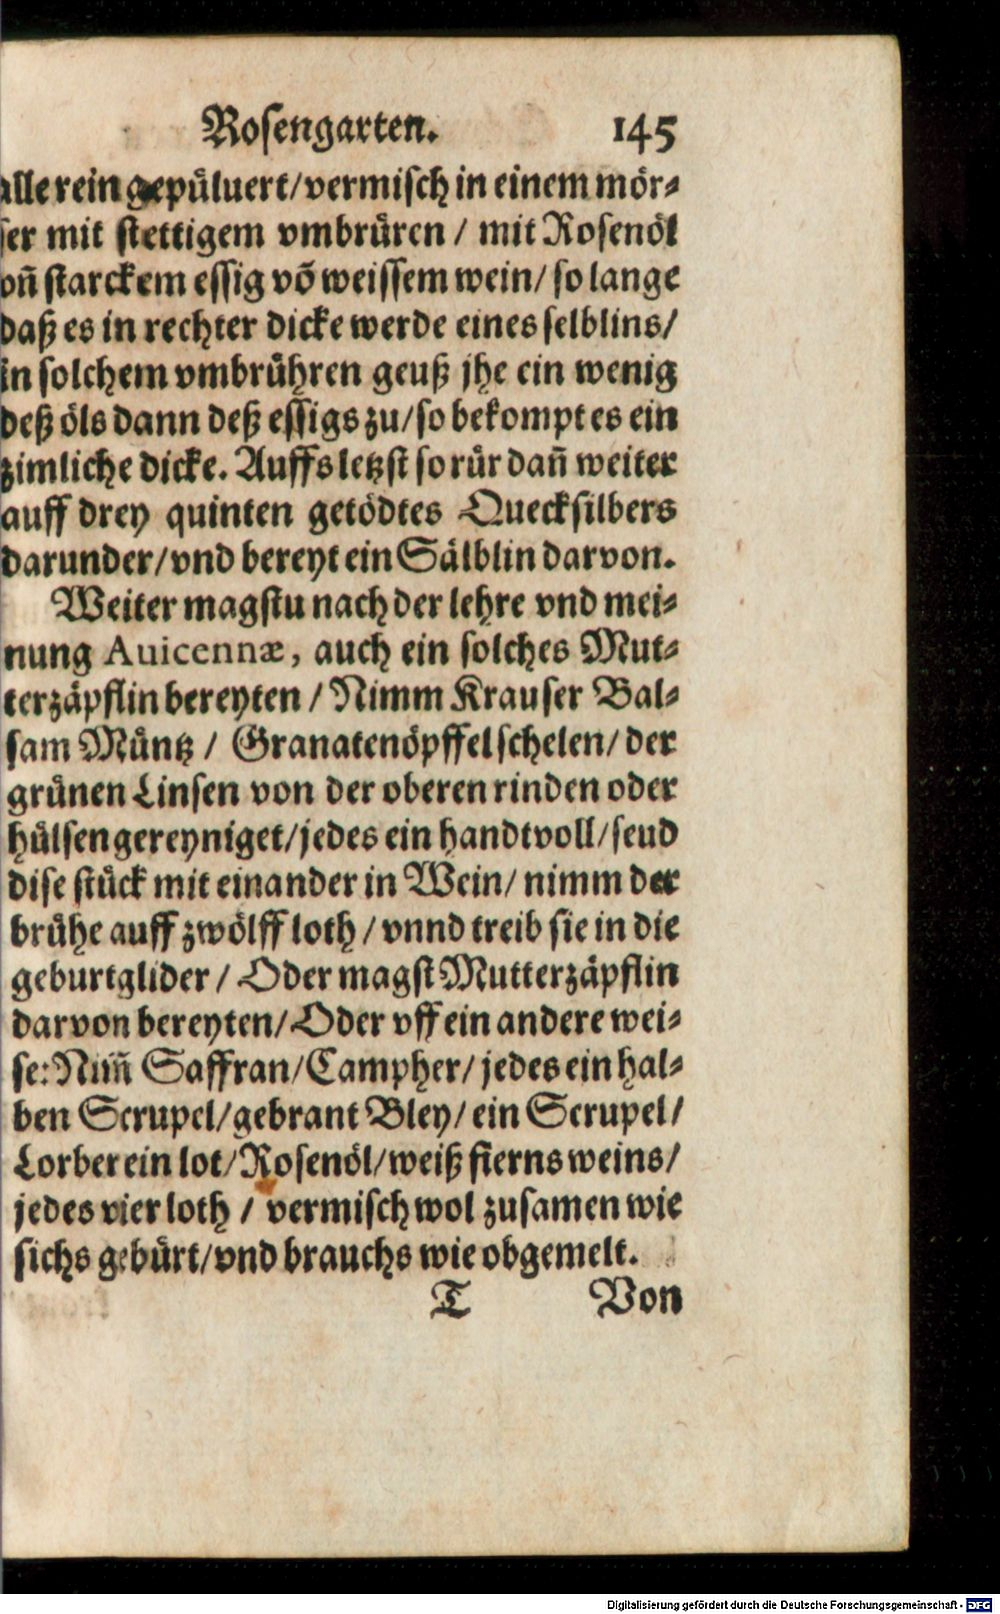 Rosengarten. 145
alle rein gepüluert/vermisch in einem mör⸗
ser mit stettigem vmbrüren / mit Rosenöl
vñ starckem essig võ weissem wein/ so lange
daß es in rechter dicke werde eines selblins/
in solchem vmbrühren geuß jhe ein wenig
deß öls dann deß essigs zu/so bekompt es ein
zimliche dicke. Auffs letzst so rür dañ weiter
auff drey quinten getödtes Quecksilbers
darunder/vnd bereyt ein Sälblin darvon.
Weiter magstu nach der lehre vnd mei⸗
nung Auicennæ, auch ein solches Mut⸗
terzäpflin bereyten / Nimm Krauser Bal⸗
sam Müntz / Granatenöpffelschelen/ der
grünen Linsen von der oberen rinden oder
hülsen gereyniget/jedes ein handtvoll/seud
dise stück mit einander in Wein/ nimm der
brühe auff zwölff loth / vnnd treib sie in die
geburtglider / Oder magst Mutterzäpflin
darvon bereyten/Oder vff ein andere wei⸗
se: Nim̃ Saffran/Campher/ jedes ein hal⸗
ben Scrupel/gebrant Bley/ ein Scrupel/
Lorber ein lot/Rosenöl/weiß fierns weins/
jedes vier loth / vermisch wol zusamen wie
sichs gebürt/vnd brauchs wie obgemelt.
T Von
Digitalisierung gefördert durch die Deutsche Forschungsgemeinschaft - DFG